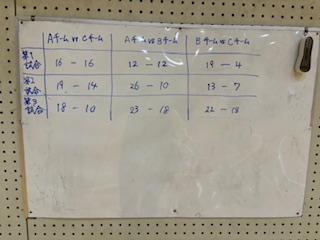 Aチーム vs Cチーム Aチーム vs Bチーム Bチーム vs Cチーム
第1試合 16 - 16 12 - 12 19 - 4
第2試合 19 - 14 26 - 10 13 - 7
第3試合 18 - 10 23 - 18 22 - 18